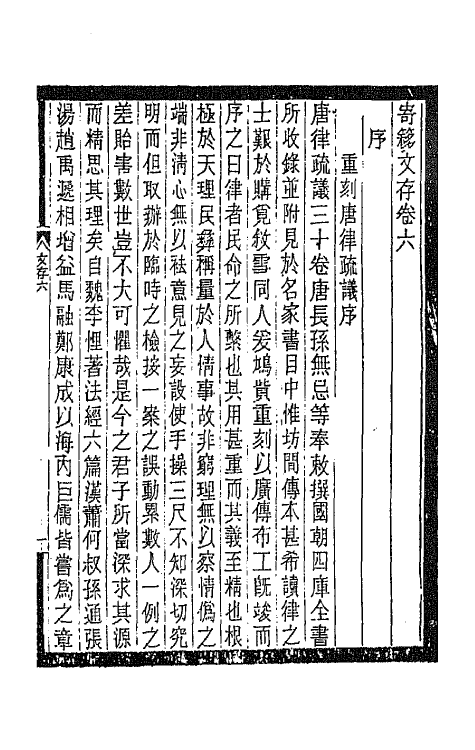 寄簃文存卷六
序
重刻唐律疏議序
唐律疏議三十卷唐長孫無忌等奉敕撰國朝四庫全書
所收錄並附見於名家書目中惟坊間傳本甚希讀律之
士艱於購覓敘雪同人爰鳩貲重刻以廣傳布工既竣而
序之曰律者民命之所繫也其用甚重而其義至精也根
極於天理民彝稱量於人情事故非窮理無以察情僞之
端非清心無以祛意見之妄設使手操三尺不知深切究
明而但取辦於臨時之檢按一案之誤動累數人一例之
差貽害數世豈不大可懼哉是今之君子所當深求其源
而精思其理矣自魏李悝著法經六篇漢蕭何叔孫通張
湯趙禹遞相增益馬融鄭康成以海內巨儒皆嘗爲之章
文存六
一